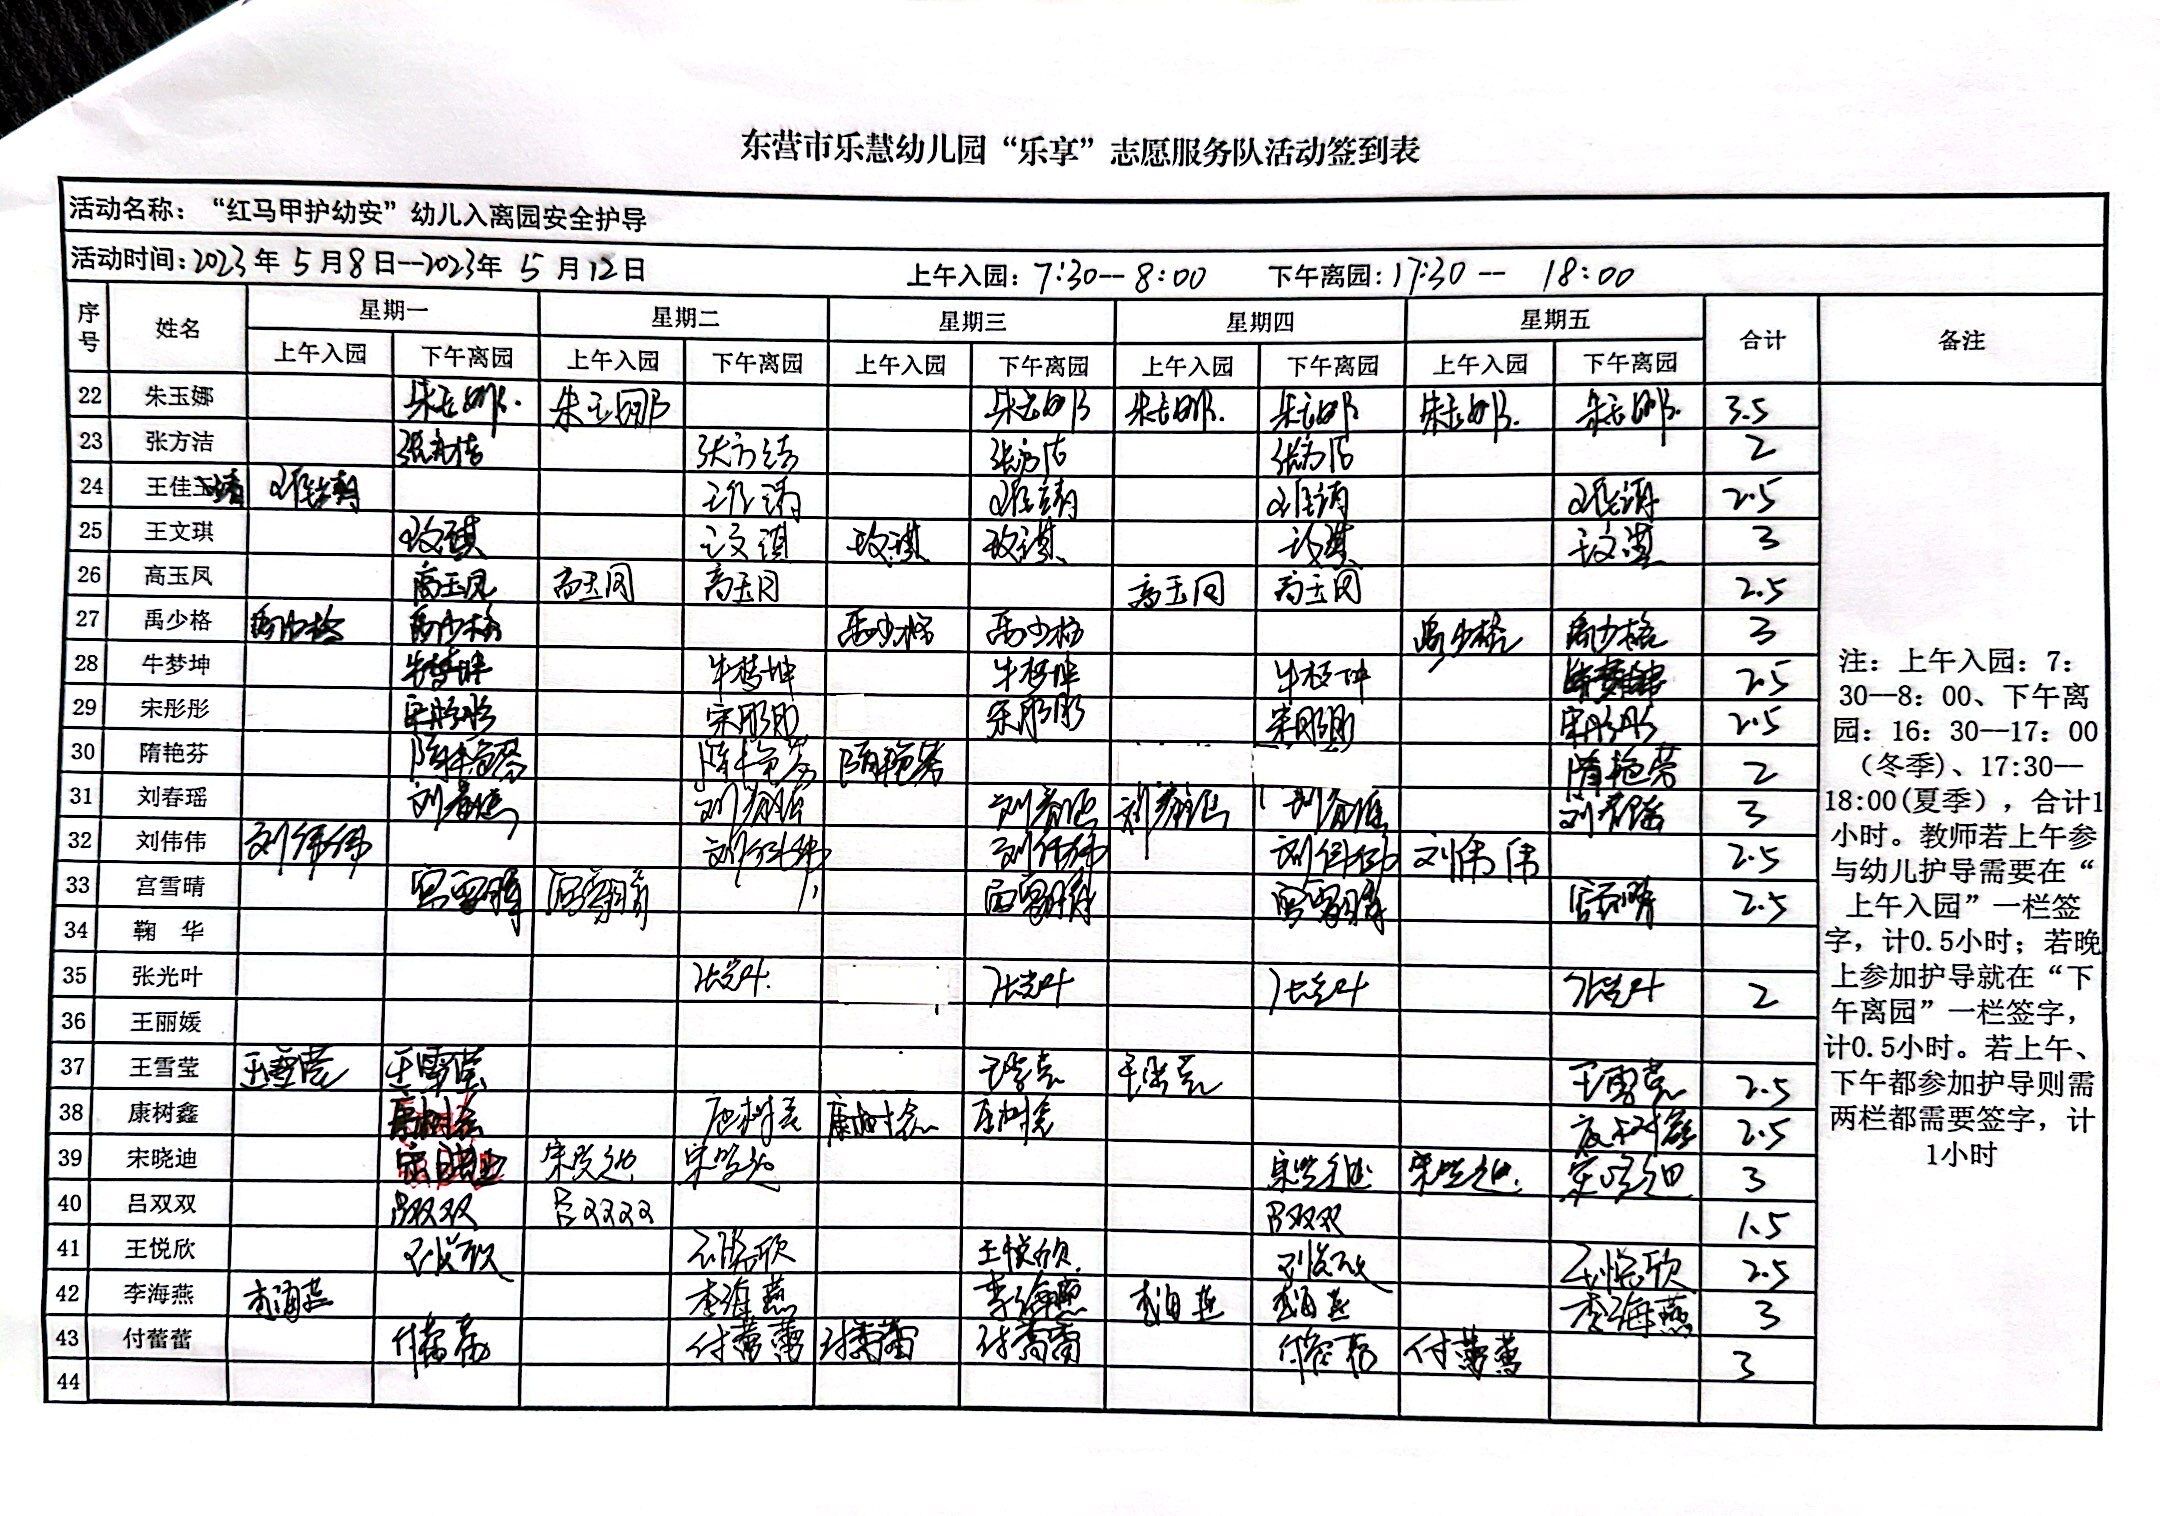 东营市乐慧幼儿园“乐享”志愿服务队活动签到表
活动名称：“红马甲护幼安”幼儿入离园安全护导
活动时间:2023年5月8日--2023年5月12日 上午入园：7:30--8:00 下午离园:17:30--18:00
序号 姓名 星期一 星期二 星期三 星期四 星期五 合计 备注
上午入园 下午离园 上午入园 下午离园 上午入园 下午离园 上午入园 下午离园 上午入园 下午离园
22 朱玉娜 朱玉娜 朱玉娜 朱玉娜 朱玉娜 朱玉娜 朱玉娜 朱玉娜 3.5
23 张方洁 张方洁 张方洁 张方洁 张方洁 2
24 王佳 王佳靖 王佳靖 王佳靖 王佳靖 王佳靖 2.5
25 王文琪 王文琪 王文琪 王文琪 王文琪 王文琪 王文琪 3
26 高玉凤 高玉凤 高玉凤 高玉凤 高玉凤 高玉凤 2.5
27 禹少格 禹少格 禹少格 禹少格 禹少格 禹少格 禹少格 3
28 牛梦坤 牛梦坤 牛梦坤 牛梦坤 牛梦坤 牛梦坤 2.5
29 宋彤彤 宋彤彤 宋彤彤 宋彤彤 宋彤彤 宋彤彤 2.5
30 隋艳芬 隋艳芬 隋艳芬 隋艳芬 隋艳芬 2
31 刘春瑶 刘春瑶 刘春瑶 刘春瑶 刘春瑶 刘春瑶 刘春瑶 3
32 刘伟伟 刘伟伟 刘伟伟 刘伟伟 刘伟伟 刘伟伟 2.5
33 宫雪晴 宫雪晴 宫雪晴 宫雪晴 宫雪晴 宫雪晴 2.5
34 鞠 华
35 张光叶 张光叶 张光叶 张光叶 张光叶 2
36 王丽媛
37 王雪莹 王雪莹 王雪莹 王雪莹 王雪莹 王雪莹 2.5
38 康树鑫 康树鑫 康树鑫 康树鑫 康树鑫 康树鑫 2.5
39 宋晓迪 宋晓迪 宋晓迪 宋晓迪 宋晓迪 宋晓迪 宋晓迪 3
40 吕双双 吕双双 吕双双 吕双双 1.5
41 王悦欣 王悦欣 王悦欣 王悦欣 王悦欣 王悦欣 2.5
42 李海燕 李海燕 李海燕 李海燕 李海燕 李海燕 李海燕 3
43 付蕾蕾 付蕾蕾 付蕾蕾 付蕾蕾 付蕾蕾 付蕾蕾 付蕾蕾 3
44
注：上午入园：7：
30--8：00、下午离
园：16：30--17：00
（冬季)、17:30--
18:00(夏季），合计1
小时。教师若上午参
与幼儿护导需要在“
上午入园”一栏签
字，计0.5小时；若晚
上参加护导就在“下
午离园”一栏签字，
计0.5小时。若上午、
下午都参加护导则需
两栏都需要签字，计
1小时